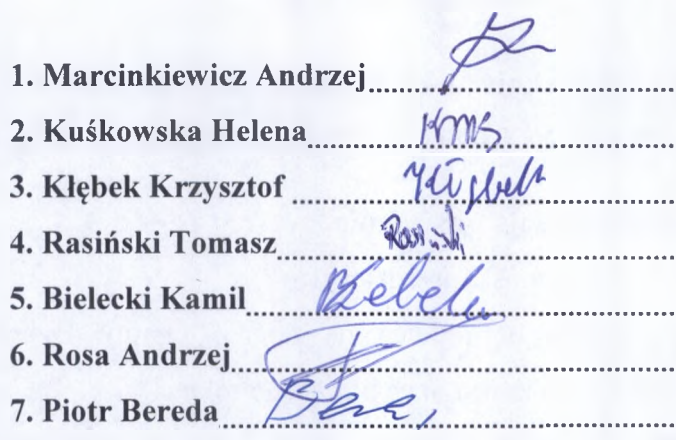 1. Marcinkiewicz Andrzej
2. Kuśkowska Helena
3. Kłębek Krzysztof Kłębek
4. Rasiński Tomasz Rasiński
5. Bielecki Kamil
6. Rosa Andrzej
7. Piotr Bereda